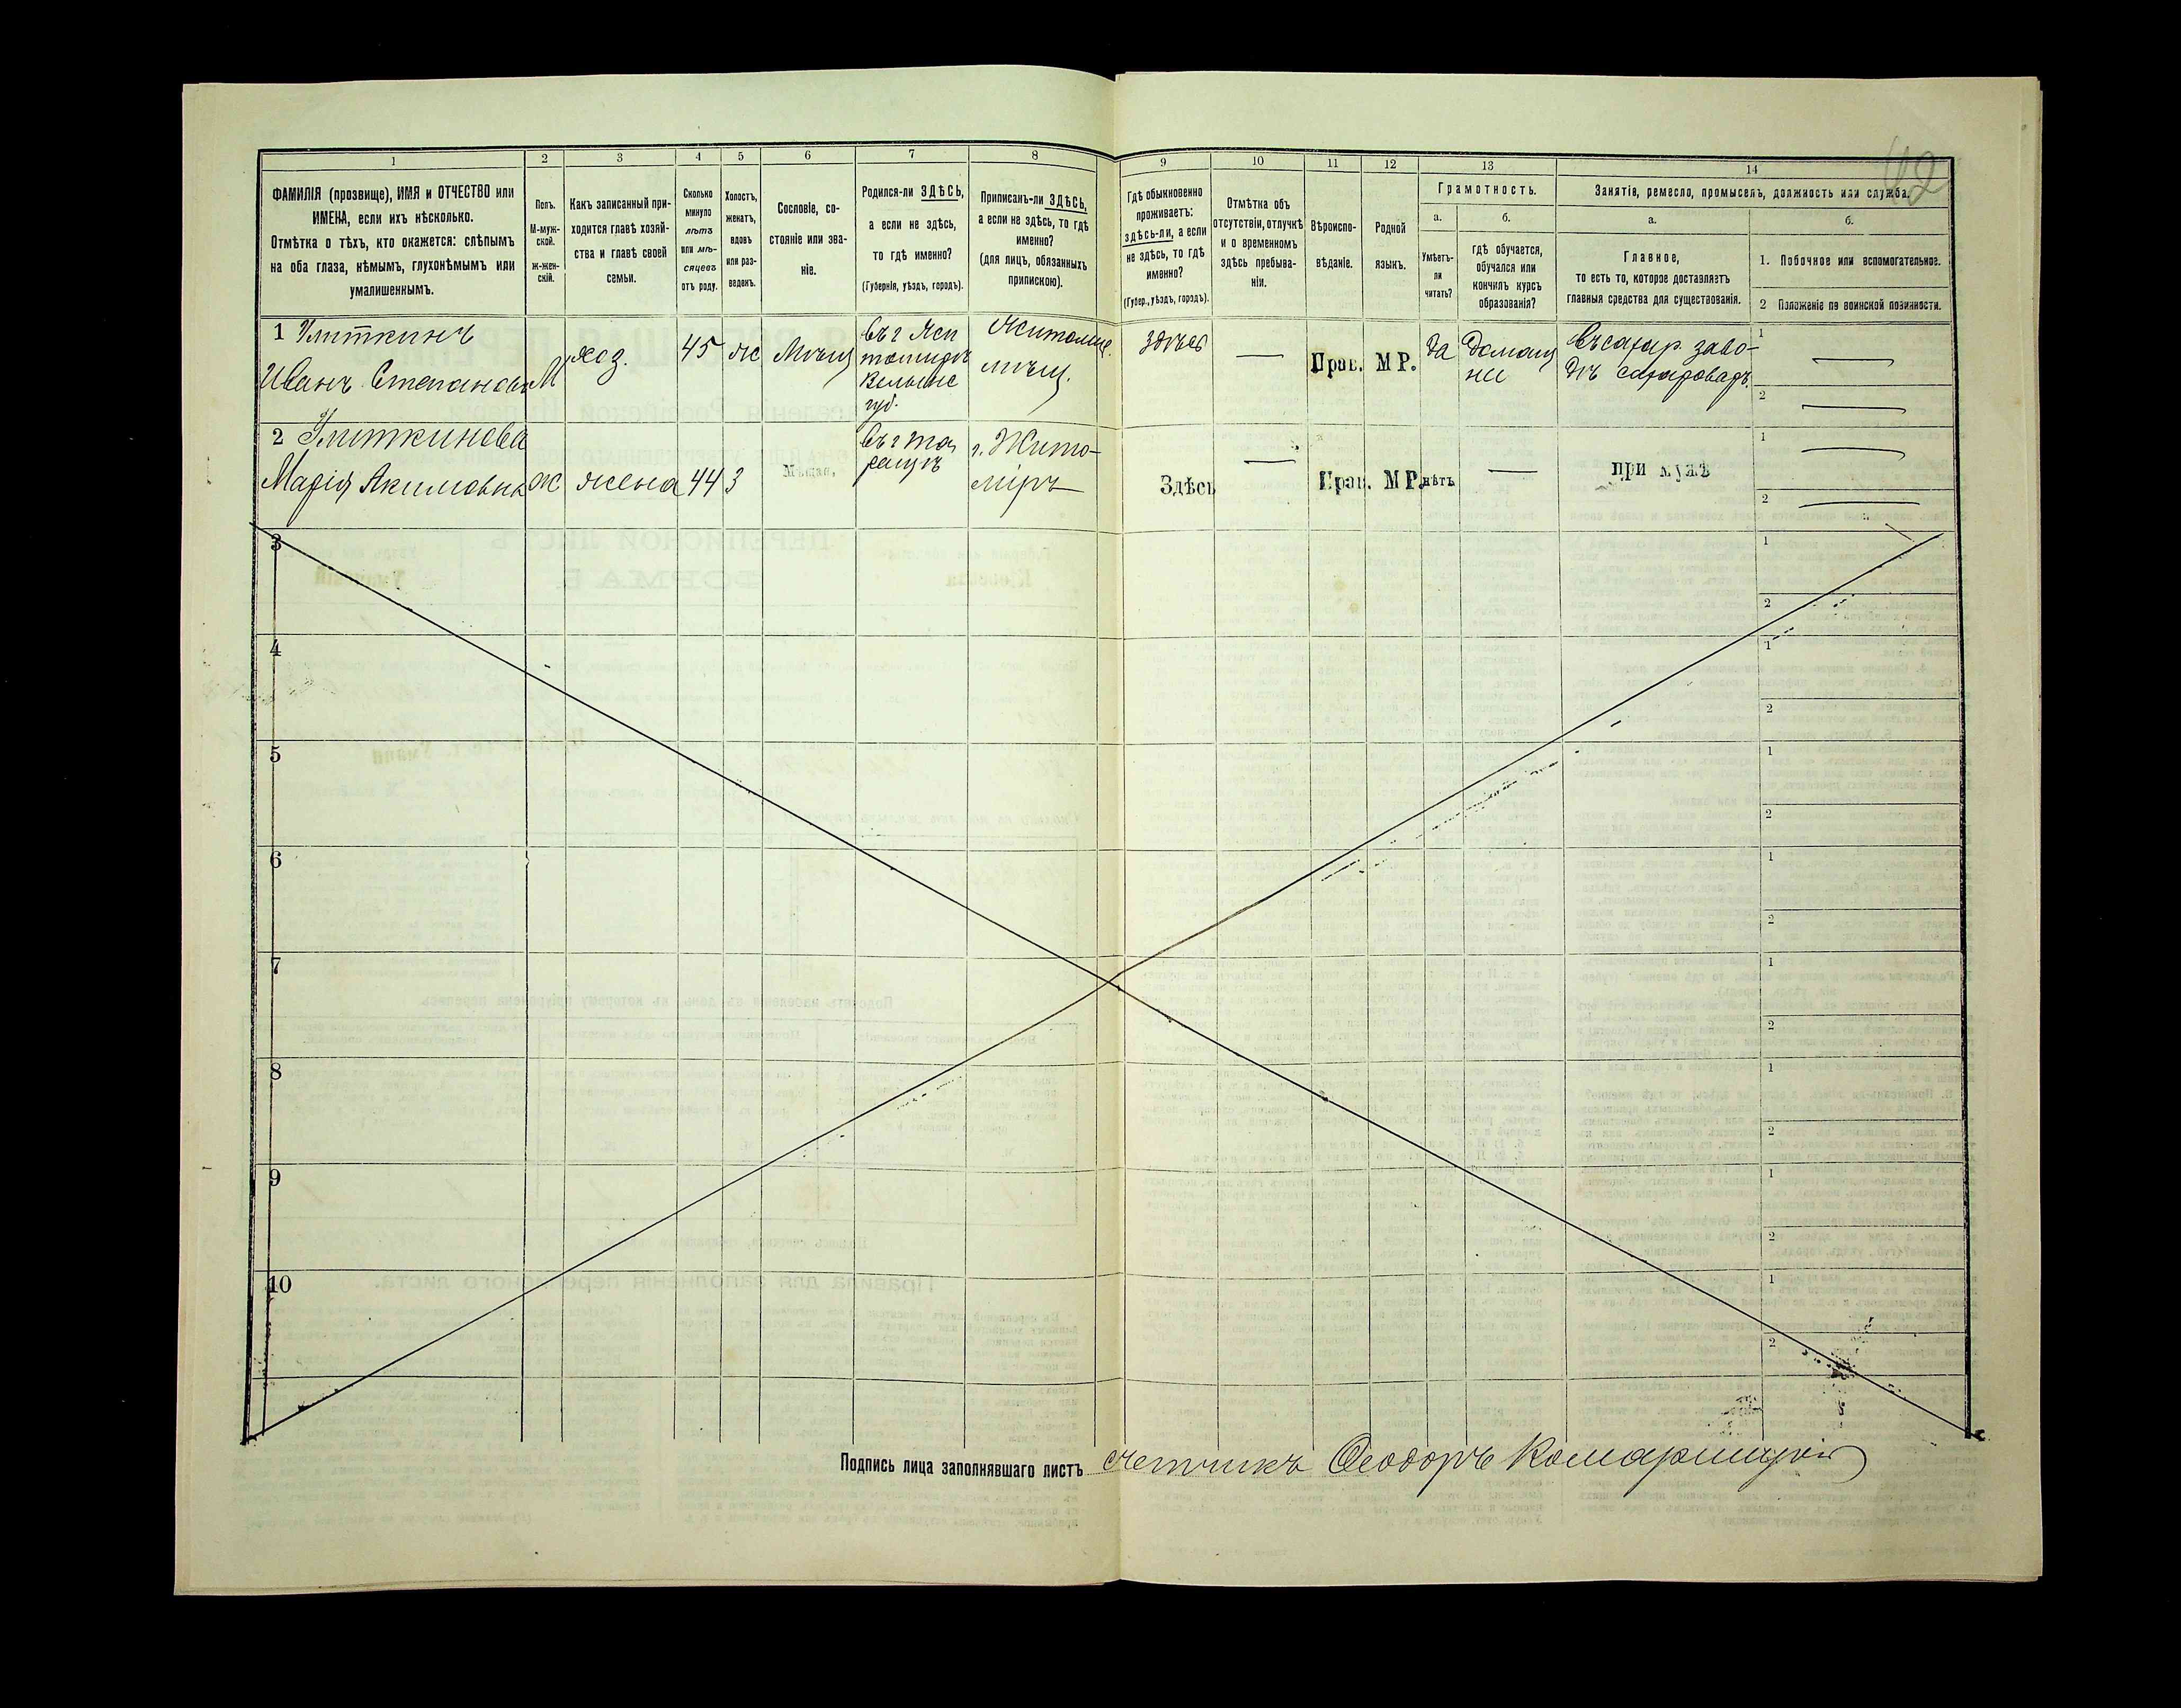 1 2 3 4 5 6 7 8 9 10 11 12 13 14
ФАМИЛІЯ (прозвище), ИМЯ и ОТЧЕСТВО или
ИМЕНА, если ихъ нѣсколько.
Отмѣтка о тѣхъ, кто окажется: слѣпымъ
на оба глаза, нѣмымъ, глухонѣмымъ или
умалишеннымъ.
Полъ.
М-муж-
ской.
ж-жен-
скій.
Какъ записанный при-
ходится главѣ хозяй-
ства и главѣ своей
семьи.
Сколько
минуло
лѣтъ
или мѣ-
сяцевъ
отъ роду.
Холостъ,
женатъ,
вдовъ
или раз-
веденъ.
Сословіе, со-
стояніе или зва-
ніе.
Родился-ли ЗДѢСЬ,
а если не здѣсь,
то гдѣ именно?
(Губернія, уѣздъ, городъ).
Приписанъ-ли ЗДѢСЬ,
а если не здѣсь, то гдѣ
именно?
(для лицъ, обязанныхъ
припискою).
Гдѣ обыкновенно
проживаетъ:
здѣсь-ли, а если
не здѣсь, то гдѣ
именно?
(Губер., уѣздъ, городъ).
Отмѣтка объ
отсутствіи, отлучкѣ
и о временномъ
здѣсь пребыва-
ніи.
Вѣроиспо-
вѣданіе.
Родной
языкъ.
Грамотность.
а.
Умѣетъ-
ли
читать?
б.
гдѣ обучается,
обучался или
кончилъ курсъ
образованія?
Занятія, ремесло, промыселъ, должность или служба.
а.
Главное,
то есть то, которое доставляетъ
главныя средства для существованія.
б.
1. Побочное или вспомогательное.
2 Положеніе по воинской повинности.
1
Иванъ Степановъ
М
хоз.
45
ж
Мѣщ
Въ г
губ.
мѣщ.
здѣсь
—
Прав.
М Р.
да
домаш
завo-
дѣ
1 —
2 —
2
Марія Акимовна
Ж
жена
44
З
Мѣщан.
Въ г Та
ращѣ
г. Жито-
міръ
Здѣсь
—
Прав.
М Р.
нѣтъ
—
при мужѣ
1 —
2 —
3 1
2
4 1
2
5 1
2
6 1
2
7 1
2
8 1
2
9 1
2
10 1
2
Подпись лица заполнявшаго листъ счетчикъ Ѳеодоръ Комарницкій